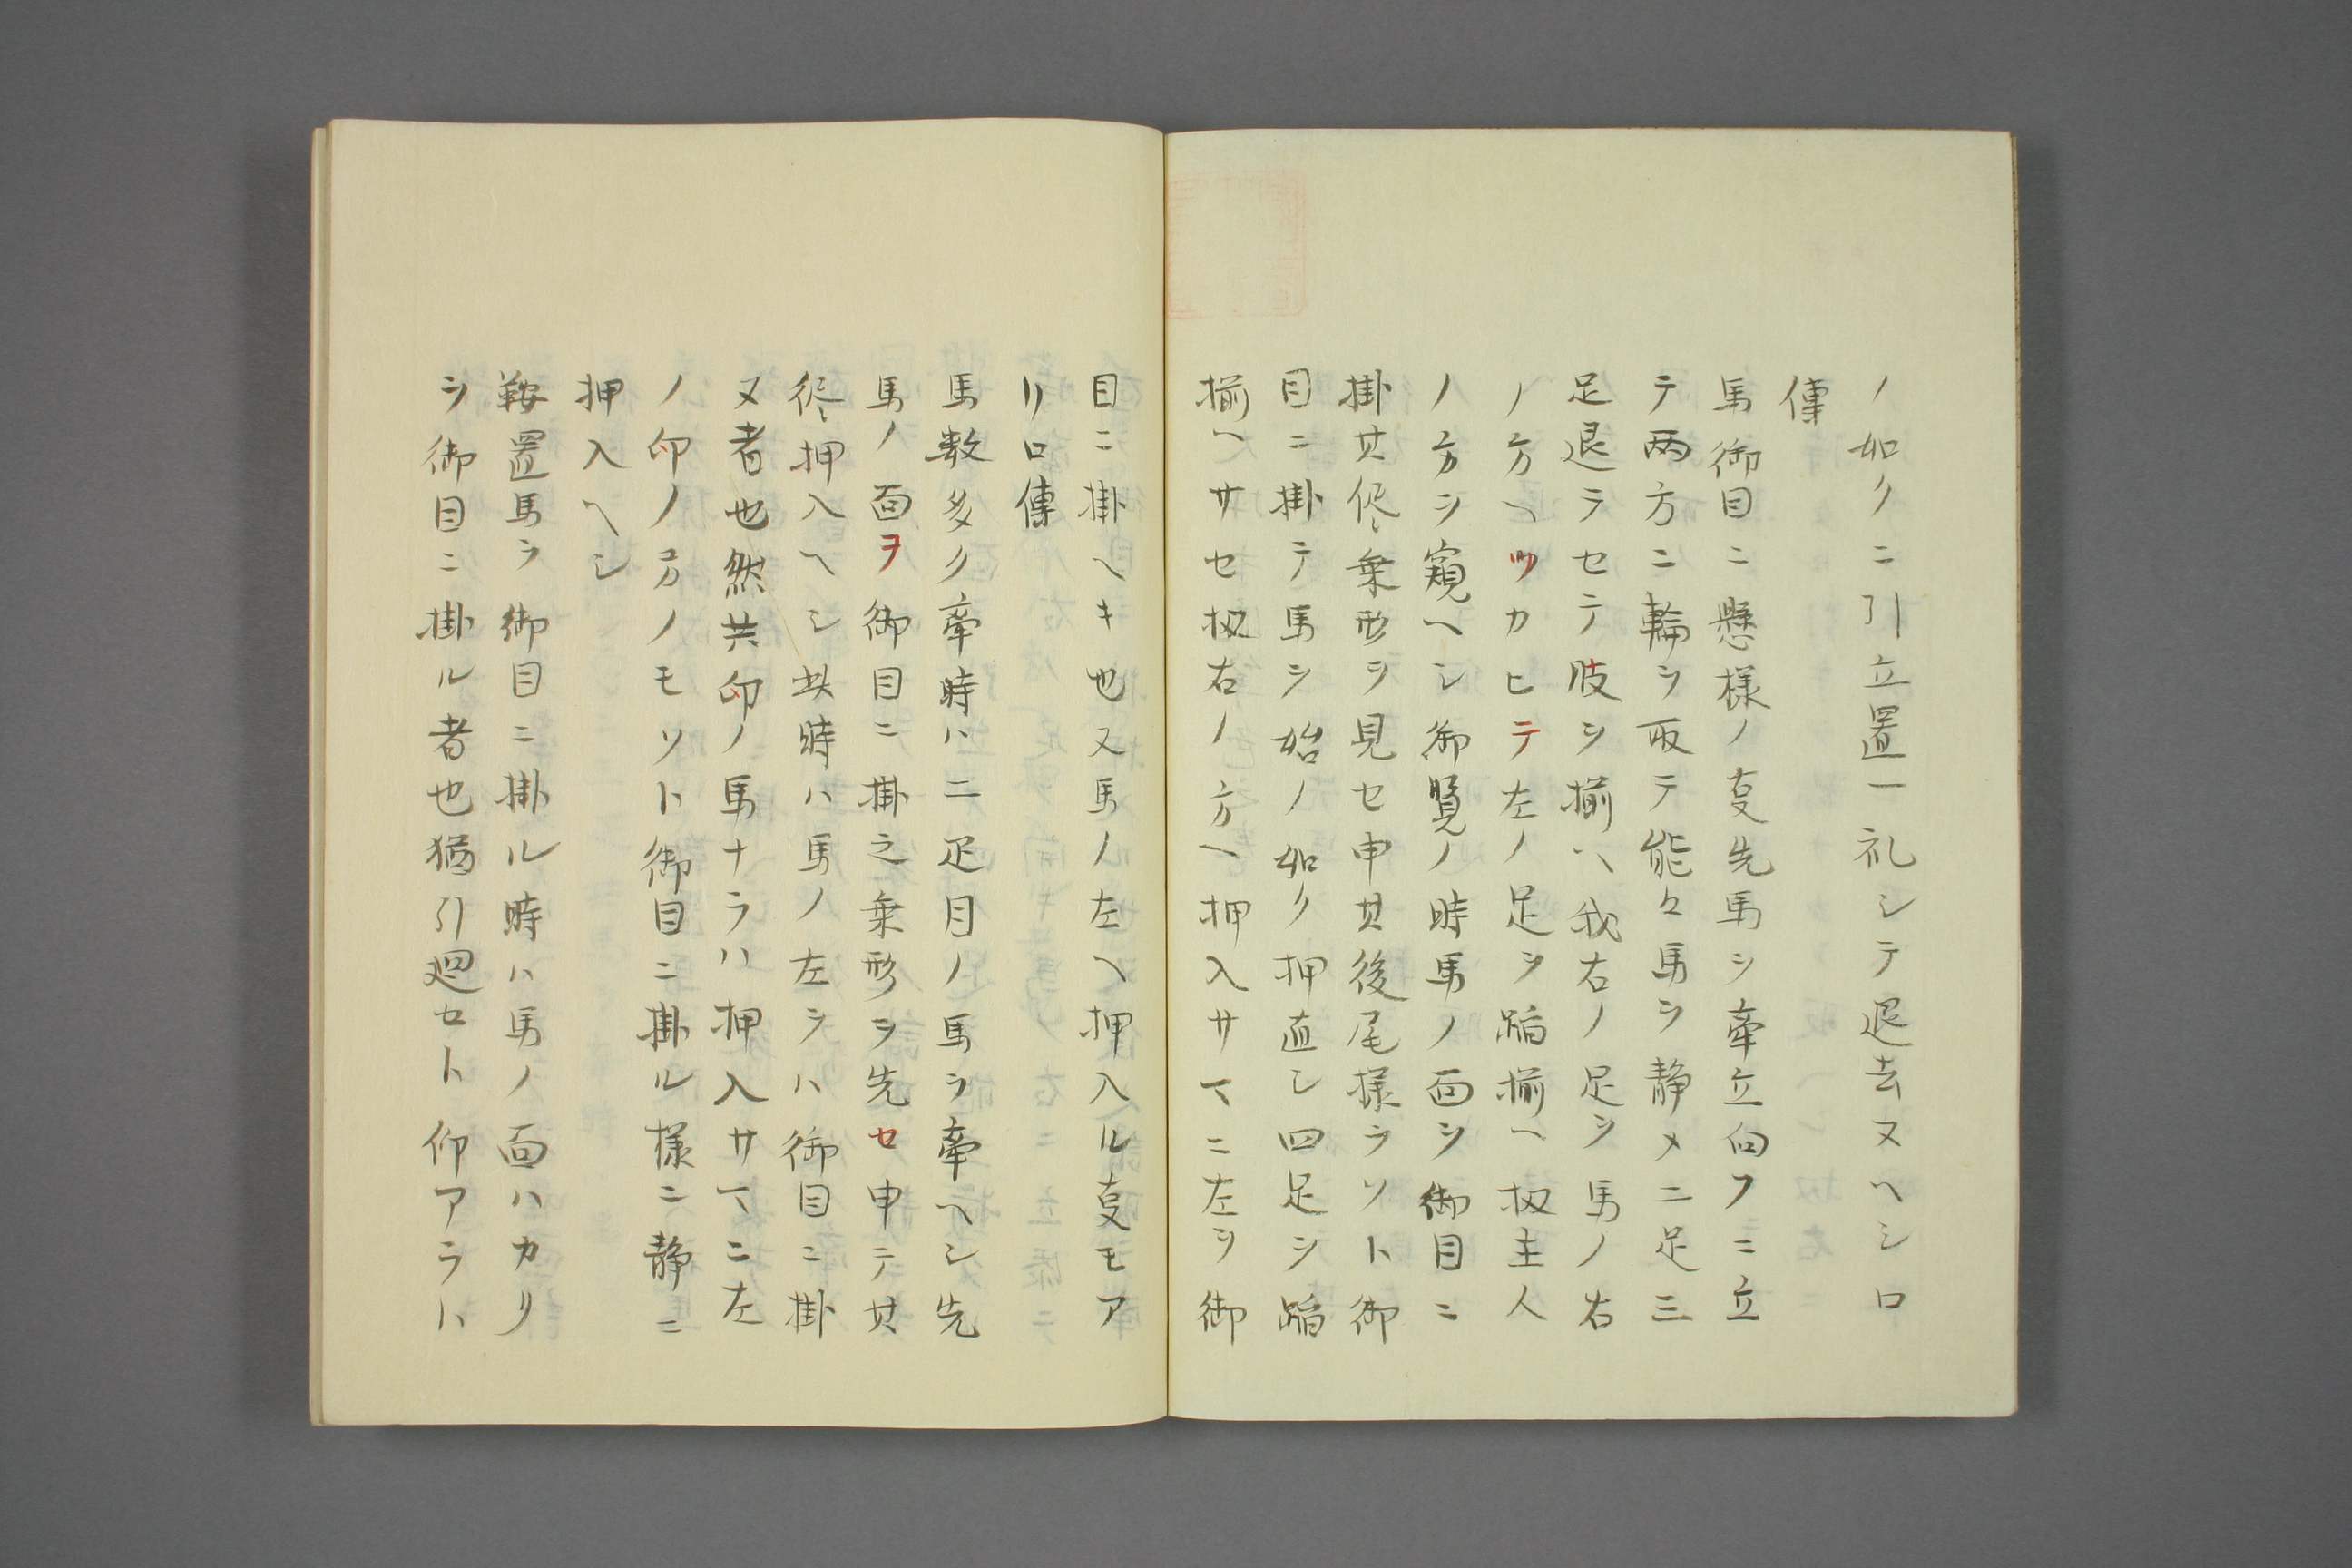 ノ如クニ引立置一礼シテ退去ヌヘシ口
傳
馬御目ニ懸様ノ叓先馬ヲ牽立向フニ立
テ両方ニ輪ヲ取テ能々馬ヲ静メ二足三
足退ラセテ肢ヲ揃ヘ我右ノ足ヲ馬ノ右
ノ方ヘツカヒテ左ノ足ヲ蹈揃ヘ扨主人
ノ方ヲ窺ヘシ御覧ノ時馬ノ面ヲ御目ニ
掛其侭乗形ヲ見セ申其後尾様ヲソト御
目ニ掛テ馬ヲ始ノ如ク押直シ四足ヲ蹈
揃ヘサセ扨右ノ方ヘ押入サマニ左ヲ御
目ニ掛ヘキ也又馬ノ左ヘ押入ル叓モア
リ口傳
馬数多ク牽時ハ二疋目ノ馬ヲ牽ヘシ先
馬ノ面ヲ御目ニ掛之乗形ヲ先セ申テ其
侭押入ヘシ此時ハ馬ノ左ヲハ御目ニ掛
ヌ者也然共印ノ馬ナラハ押入サマニ左
ノ印ノ方ノモソト御目ニ掛ル様ニ静ニ
押入ヘシ
鞍置馬ヲ御目ニ掛ル時ハ馬ノ面ハカリ
ヲ御目ニ掛ル者也猶引廻セト仰アラハ